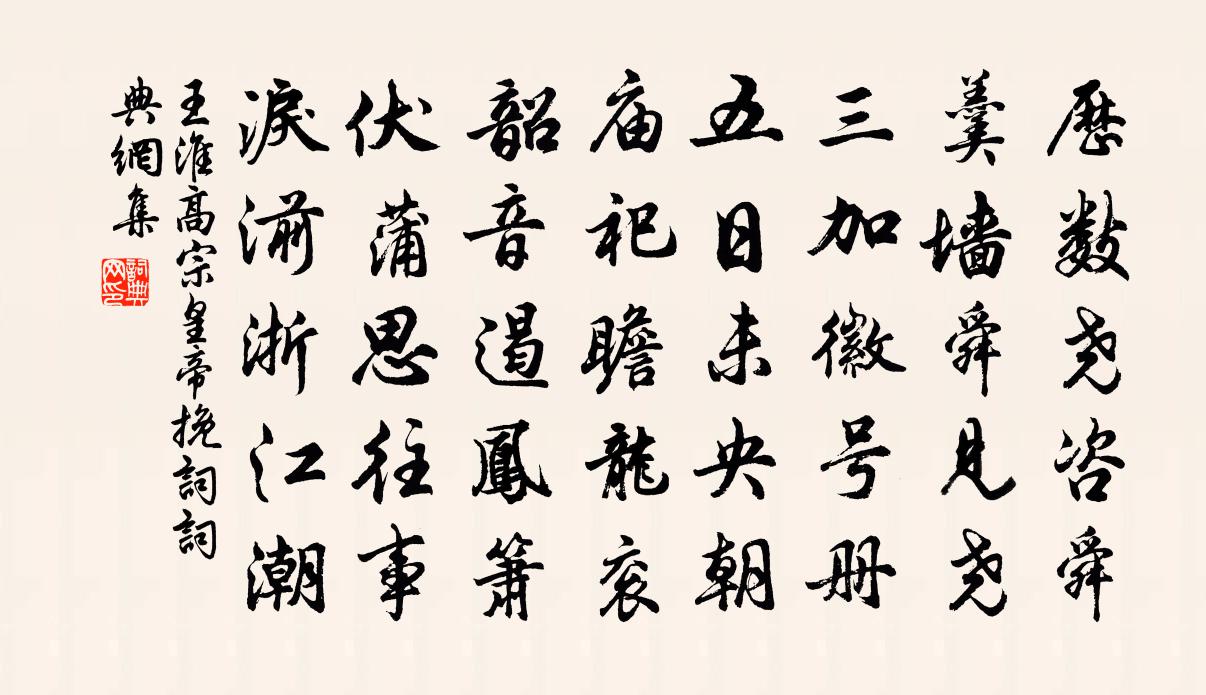 歷数尧咨舜
羹墙舜見尧
三加徽号册
五日未央朝
庙祀瞻龍衮
韶音遏鳳簫
伏蒲思往事
淚湔浙江潮
王淮高宗皇帝挽詞詞
典網集
詞典网印